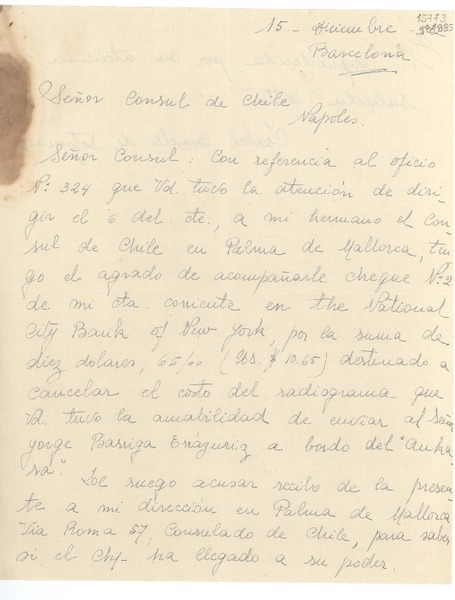 15 - Diciembre
15173
Barcelona
Señor Consul de Chile
Napoles.
Señor Consul: Con referencia al oficio
Nº 324 que Vd. tuvo la atención de diri-
gir el 6 del cte., a mi hermano el Con-
sul de Chile en Palma de Mallorca, ten-
go el agrado de acompañarle cheque Nº 2
de mi cta. corriente en the National
City Bank of New York, por la suma de
diez dolares, 65/00 ( $ 10.65) destinado a
cancelar el costo del radiograma que
Vd. tuvo la amabilidad de enviar al señor
Jorge Barriga Errázuriz a bordo del "Anka-
ra".
Le ruego acusar recibo de la presen-
te a mi dirección en Palma de Mallorca
Via Roma 57, Consulado de Chile, para saber
si el Ch/- ha llegado a su poder.